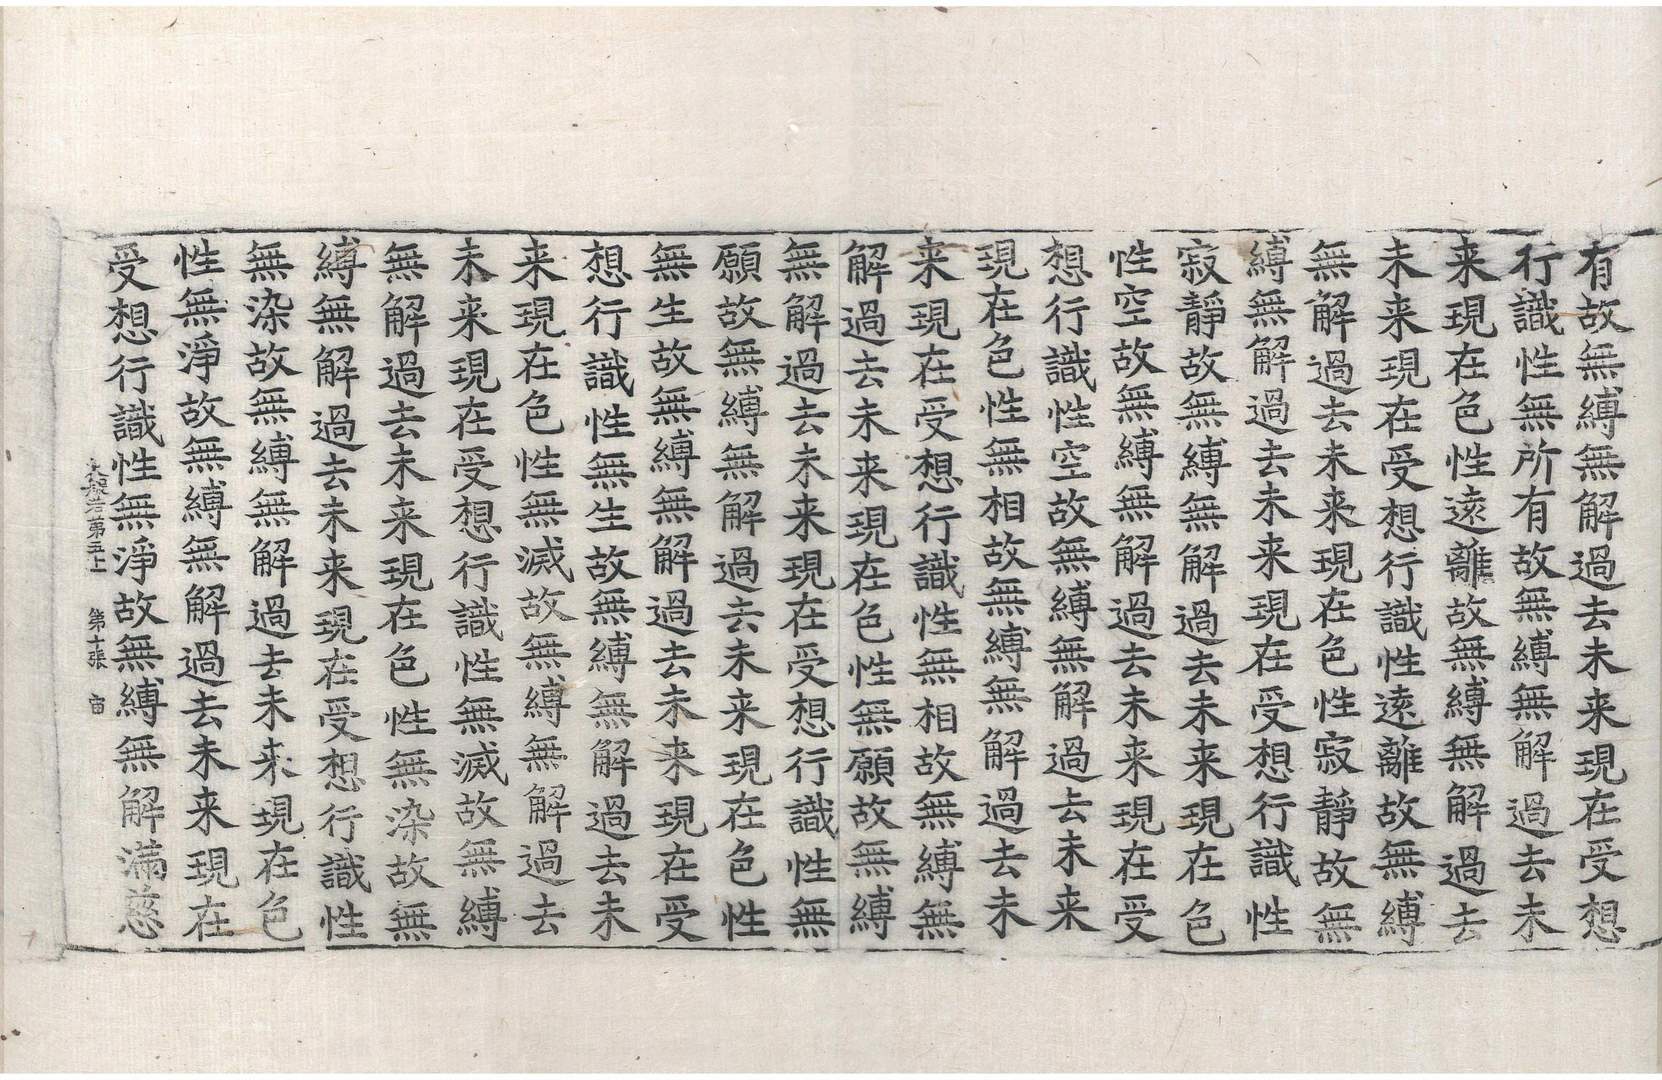 有故無縛無解過去未来現在受想
行識性無所有故無縛無解過去未
来現在色性遠離故無縛無解過去
未来現在受想行識性遠離故無縛
無解過去未来現在色性寂靜故無
縛無解過去未来現在受想行識性
寂靜故無縛無解過去未来現在色
性空故無縛無解過去未来現在受
想行識性空故無縛無解過去未来
現在色性無相故無縛無解過去未
来現在受想行識性無相故無縛無
解過去未来現在色性無願故無縛
無解過去未来現在受想行識性無
願故無縛無解過去未来現在色性
無生故無縛無解過去未来現在受
想行識性無生故無縛無解過去未
来現在色性無滅故無縛無解過去
未来現在受想行識性無滅故無縛
無解過去未来現在色性無染故無
縛無解過去未来現在受想行識性
無染故無縛無解過去未来現在色
性無淨故無縛無解過去未来現在
受想行識性無淨故無縛無解滿慈
大般若第五十一 第十張 宙